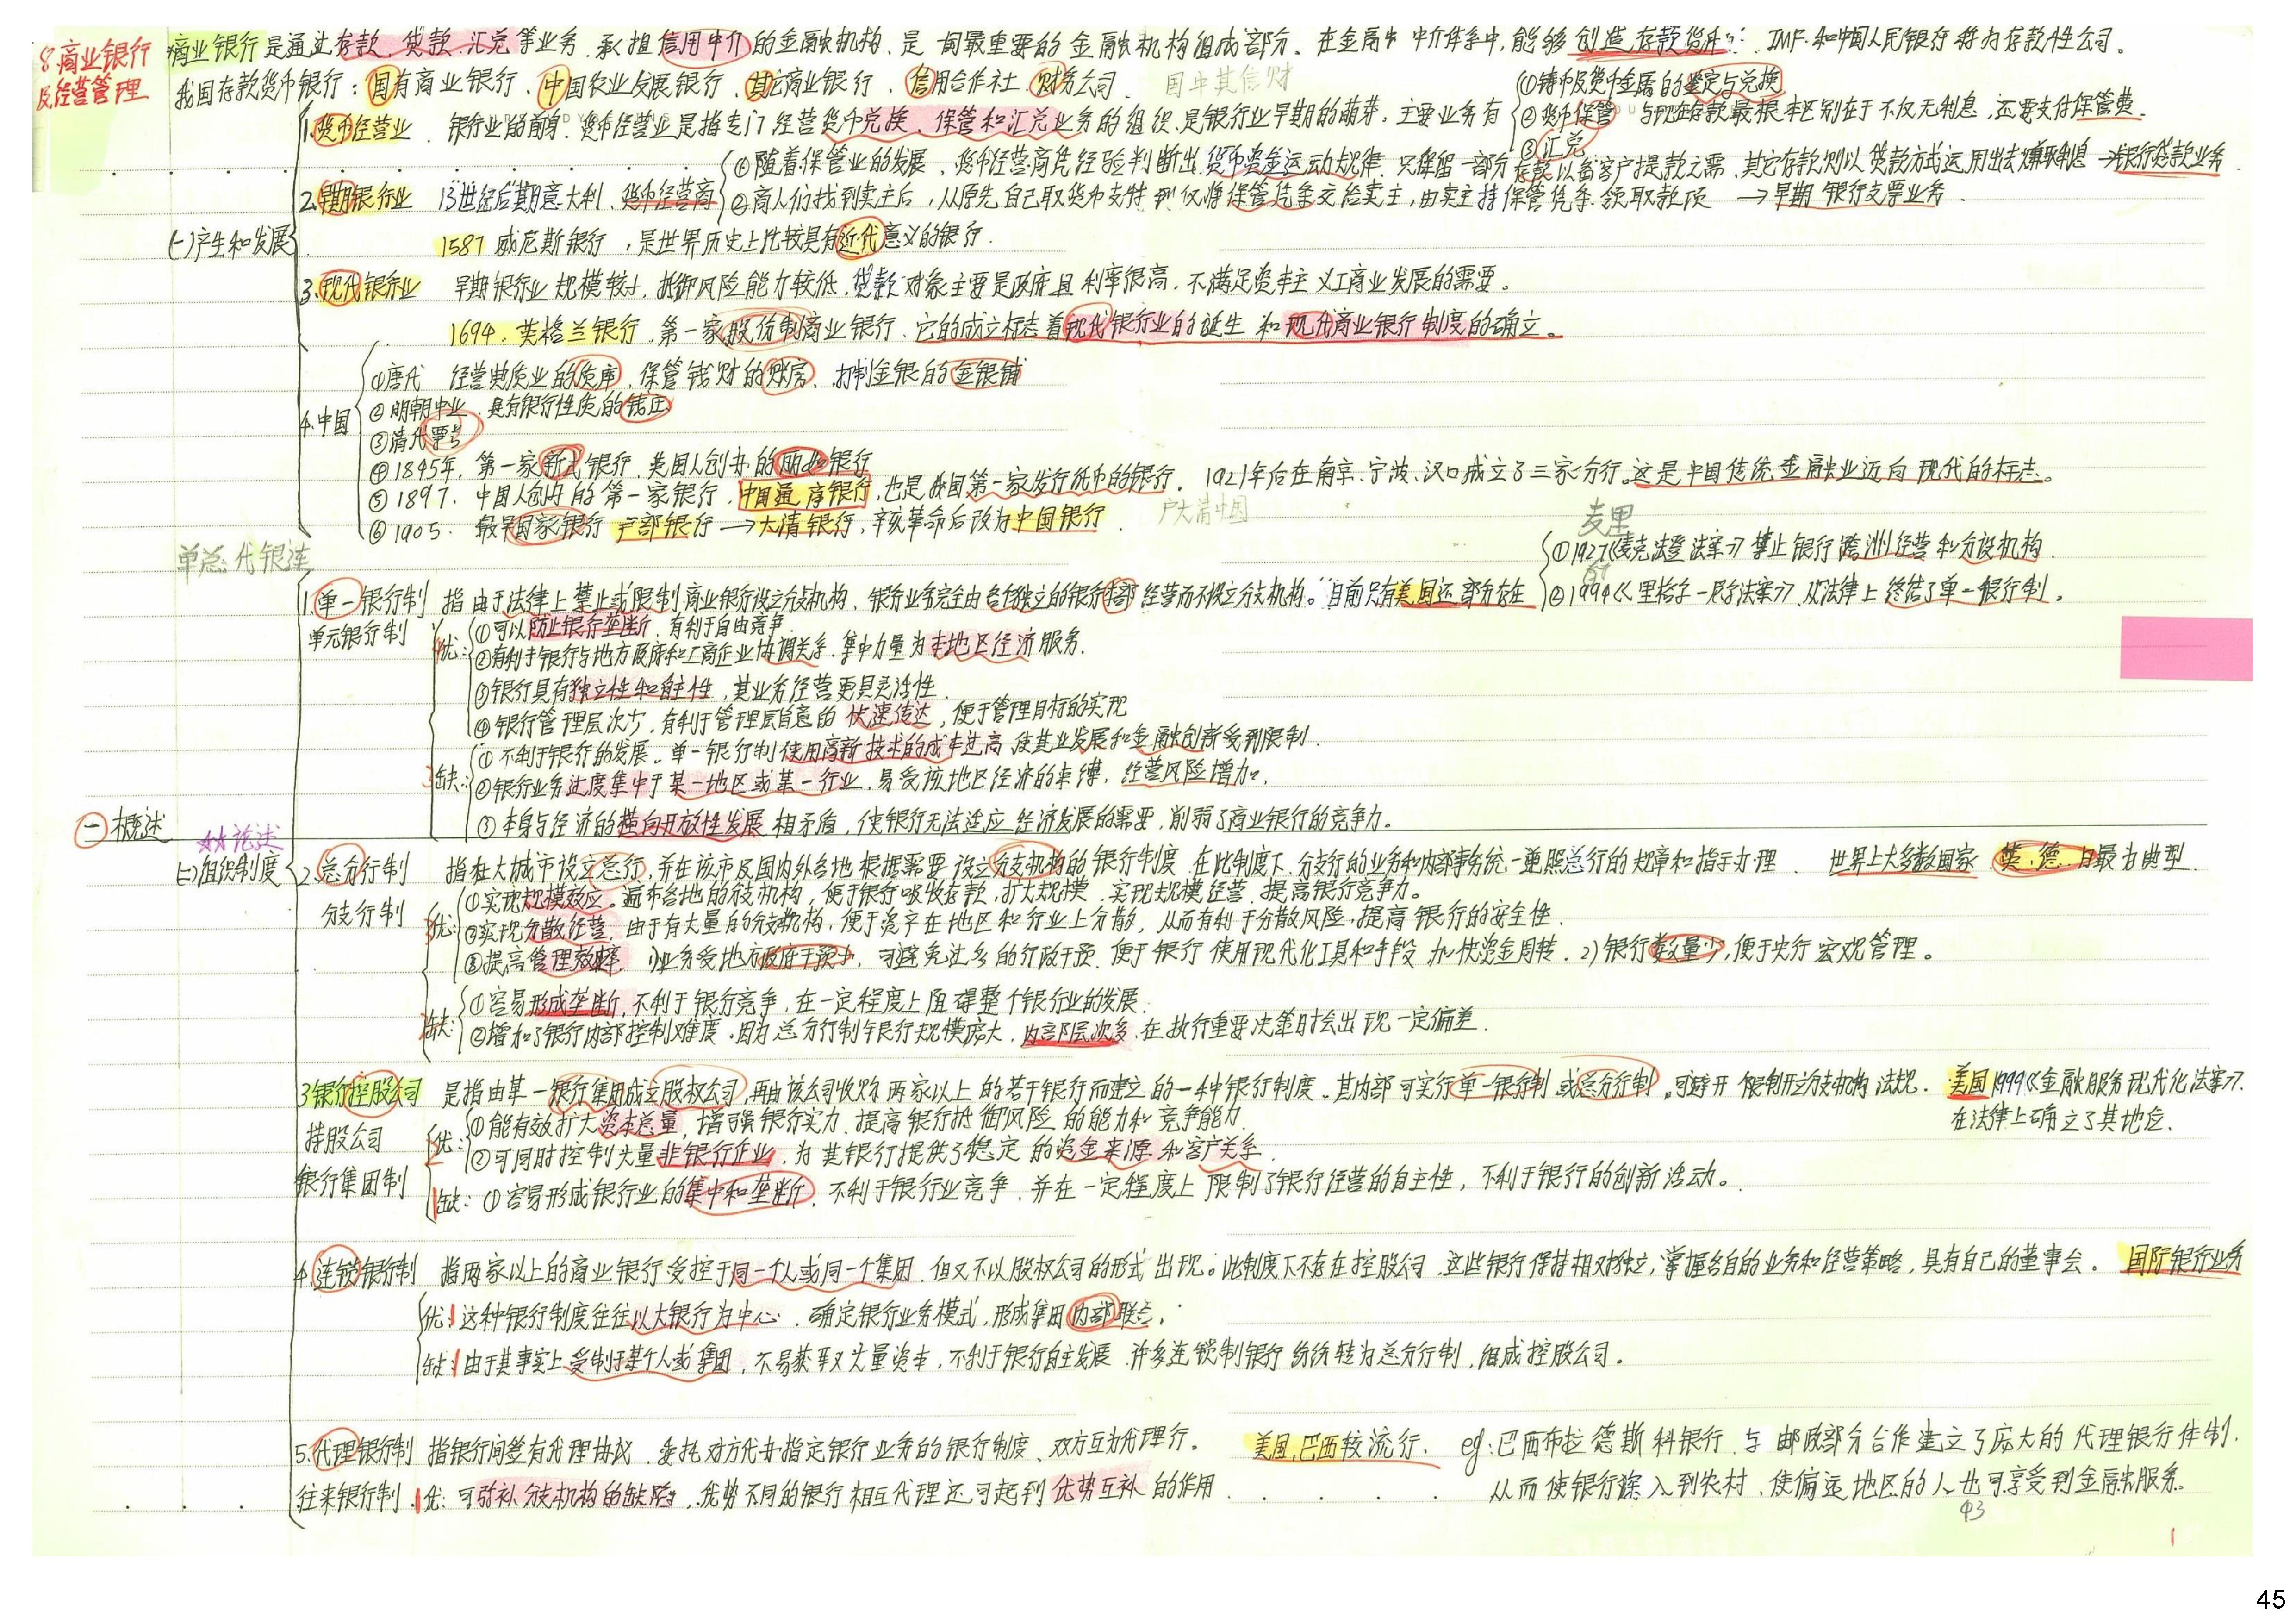 8.商业银行及经营管理
商业银行是通过存款、贷款、汇兑等业务,承担信用中介的金融机构,是一国最重要的金融机构组成部分。在金融中介体系中,能够创造存款货币。IMF和中国人民银行称为存款性公司。
我国存款货币银行:国有商业银行、中国农业发展银行、其它商业银行、信用合作社、财务公司 国中其信财
㈠产生和发展
1.货币经营业 银行业的前身.货币经营业是指专门经营货币兑换、保管和汇兑业务的组织,是银行业早期的萌芽,主要业务有
①铸币及货币金属的鉴定与兑换
②货币保管 与现在存款最根本区别在于不仅无利息,还要支付保管费.
③汇兑
2.早期银行业 13世纪后期意大利,货币经营商
①随着保管业的发展,货币经营商凭经验判断出货币资金运动规律,只保留一部分存款以备客户提款之需,其它存款则以贷款方式运用出去赚取利息→银行贷款业务.
②商人们找到卖主后,从原先自己取货币支付到仅将保管凭条交给卖主,由卖主持保管凭条领取款项→早期银行支票业务.
1587 威尼斯银行,是世界历史上比较具有近代意义的银行.
3.现代银行业 早期银行业规模较小,抵御风险能力较低,贷款对象主要是政府且利率很高,不满足资本主义工商业发展的需要。
1694,英格兰银行,第一家股份制商业银行、它的成立标志着现代银行业的诞生和现代商业银行制度的确立。
4.中国
①唐代 经营典质业的质库、保管钱财的财房、打制金银的金银铺
②明朝中业,具有银行性质的钱庄
③清代票号
④1845年,第一家新式银行,英国人创办的丽如银行
⑤1897.中国人创办的第一家银行,中国通商银行,也是我国第一家发行纸币的银行,1921年后在南京、宁波、汉口成立了三家分行。这是中国传统金融业迈向现代的标志。
⑥1905.最早国家银行户部银行→大清银行,辛亥革命后改为中国银行. 户大清中国
单总代银连
麦里
㊀概述
☆☆论述
㈡组织制度
1.单一银行制 指由于法律上禁止或限制商业银行设立分支机构、银行业务完全由各个独立的银行本部经营而不设立分支机构。目前只有美国还部分存在
单元银行制
①1927《麦克法登法案》禁止银行跨州经营和分设机构.
②1994《里格尔-尼尔法案》,从法律上终结了单一银行制.
优:①可以防止银行垄断,有利于自由竞争.
②有利于银行与地方政府和工商企业协调关系,集中力量为本地区经济服务.
③银行具有独立性和自主性,其业务经营更具灵活性.
④银行管理层次少,有利于管理层旨意的快速传达,便于管理目标的实现
缺:①不利于银行的发展、单一银行制使用高新技术的成本过高,使其业务发展和金融创新受到限制.
②银行业务过度集中于某一地区或某一行业,易受该地区经济的束缚,经营风险增加.
③本身与经济的横向开放性发展相矛盾,使银行无法适应经济发展的需要,削弱了商业银行的竞争力.
2.总分行制 指在大城市设立总行,并在该市及国内外各地根据需要设立分支机构的银行制度.在此制度下,分支行的业务和内部事务统一遵照总行的规章和指示办理. 世界上大多数国家 英、德、日最为典型.
分支行制
优:①实现规模效应。遍布各地的分支机构,便于银行吸收存款,扩大规模,实现规模经营,提高银行竞争力。
②实现分散经营.由于有大量的分支机构,便于资产在地区和行业上分散,从而有利于分散风险,提高银行的安全性.
③提高管理效率. 1)业务受地方政府干预少,可避免过多的行政干预,便于银行使用现代化工具和手段加快资金周转. 2)银行数量少,便于央行宏观管理。
缺:①容易形成垄断,不利于银行竞争,在一定程度上阻碍整个银行业的发展.
②增加了银行内部控制难度.因为总分行制下银行规模庞大,内部层次多,在执行重要决策时会出现一定偏差.
3.银行控股公司 是指由某一银行集团成立股权公司,再由该公司收购两家以上的若干银行而建立的一种银行制度。其内部可实行单一银行制或总分行制.可避开限制开立分支机构法规. 美国1999《金融服务现代化法案》.
在法律上确立了其地位.
持股公司
银行集团制
优:①能有效扩大资本总量,增强银行实力.提高银行抵御风险的能力和竞争能力.
②可同时控制大量非银行企业,为其银行提供了稳定的资金来源和客户关系.
缺:①容易形成银行业的集中和垄断,不利于银行业竞争,并在一定程度上限制了银行经营的自主性,不利于银行的创新活动。
4.连锁银行制 指两家以上的商业银行受控于同一个人或同一个集团,但又不以股权公司的形式出现。此制度下不存在控股公司,这些银行保持相对独立,掌握各自的业务和经营策略,具有自己的董事会. 国际银行业务
优:这种银行制度往往以大银行为中心,确定银行业务模式,形成集团内部联合,
缺:由于其事实上受制于某个人或集团,不易获取大量资本,不利于银行自主发展,许多连锁制银行纷纷转为总分行制,组成控股公司。
5.代理银行制 指银行间签有代理协议,委托对方代办指定银行业务的银行制度,双方互为代理行. 美国,巴西较流行. eg:巴西布拉德斯科银行与邮政部分合作建立了庞大的代理银行体制.
往来银行制 优:可弥补分支机构的缺陷,优势不同的银行相互代理还可起到优势互补的作用. 从而使银行深入到农村,使偏远地区的人也可享受到金融服务。
43
1
45